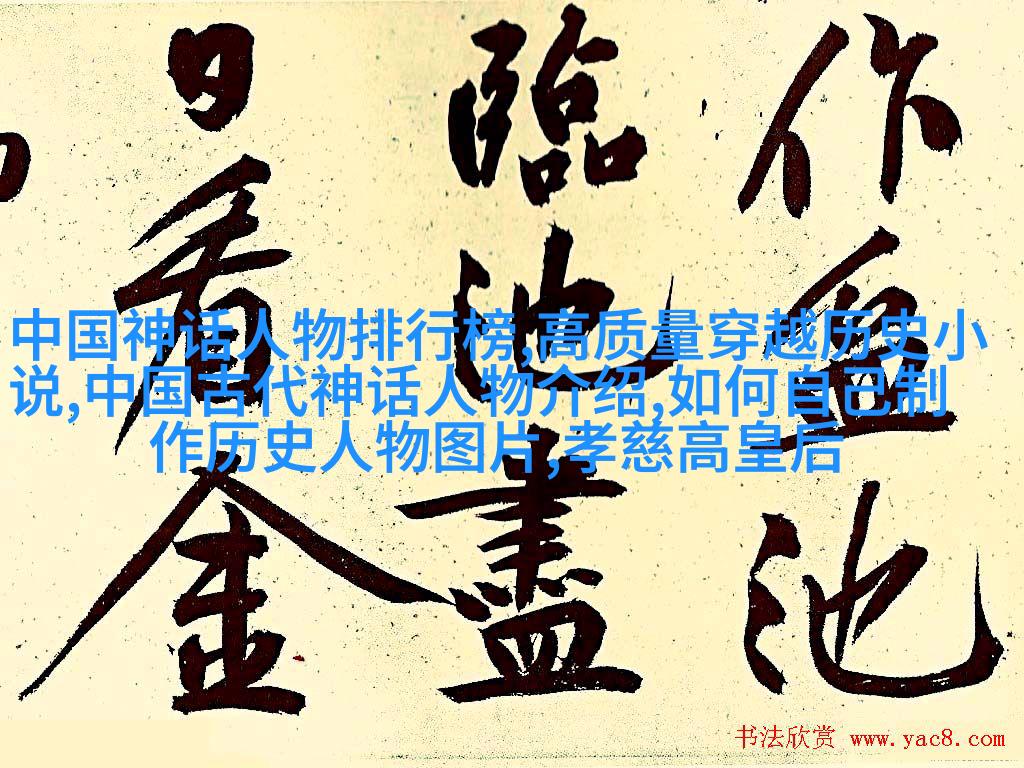 作池
臨池盡
日看金
中国神话人物排行榜,高质量穿越历史小
说,中国古代神话人物介绍,如何自己制
作历史人物图片,孝慈高皇后
书法欣赏 www.yac8.com